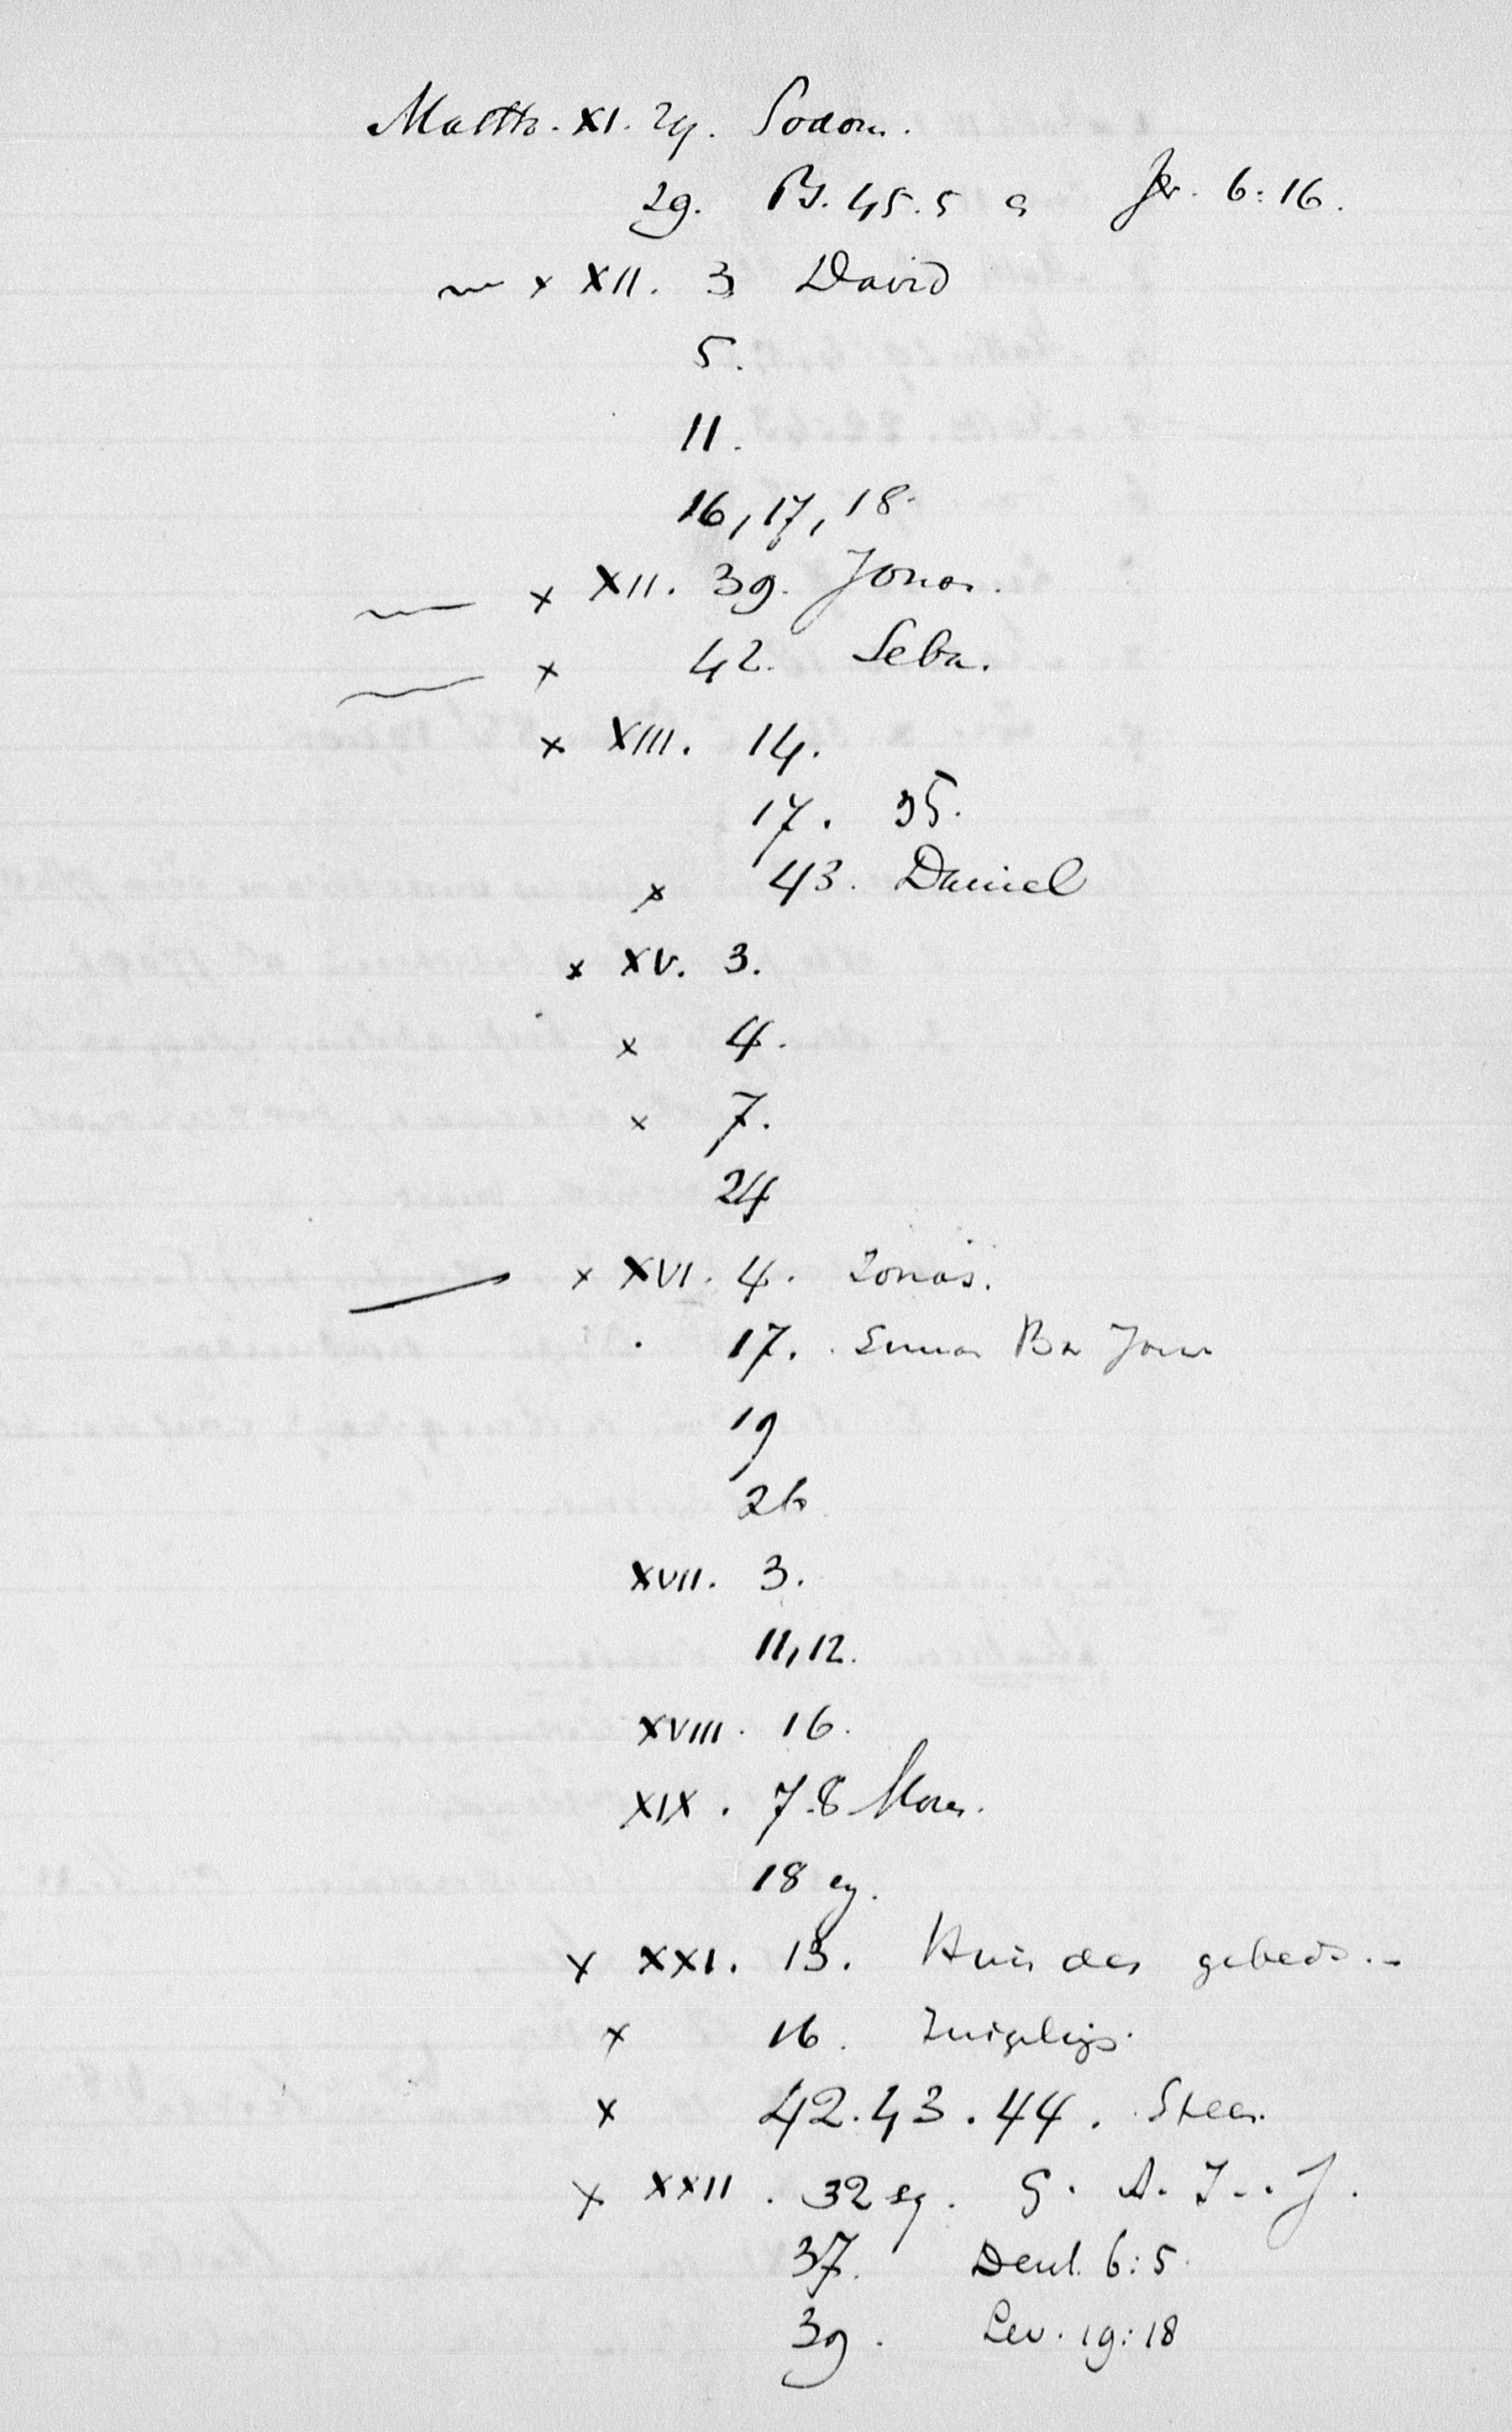 Matth. XI. 24. Sodom.
29. Ps. 45.5 a Jer. 6:16.
~ x XII. 3 David
5.
11.
16, 17, 18.
~ x XII. 39. Jonas.
~ x 42. Seba.
x XIII. 14.
17. 35.
x 43. Daniel
x XV. 3.
x 4.
x 7.
24
— x XVI. 4. Jonas.
17. Simon Bar Jona
19
26
XVII. 3.
11, 12.
XVIII. 16.
XIX. 7.8 Mozes.
18 eq.
x XXI. 13. Huis des gebeds.-
x 16. Zuigelings.
x 42.43.44. Steen.
x XXII. 32 sq. G. A. I.. J.
37. Deut. 6:5.
39. Lev. 19:18